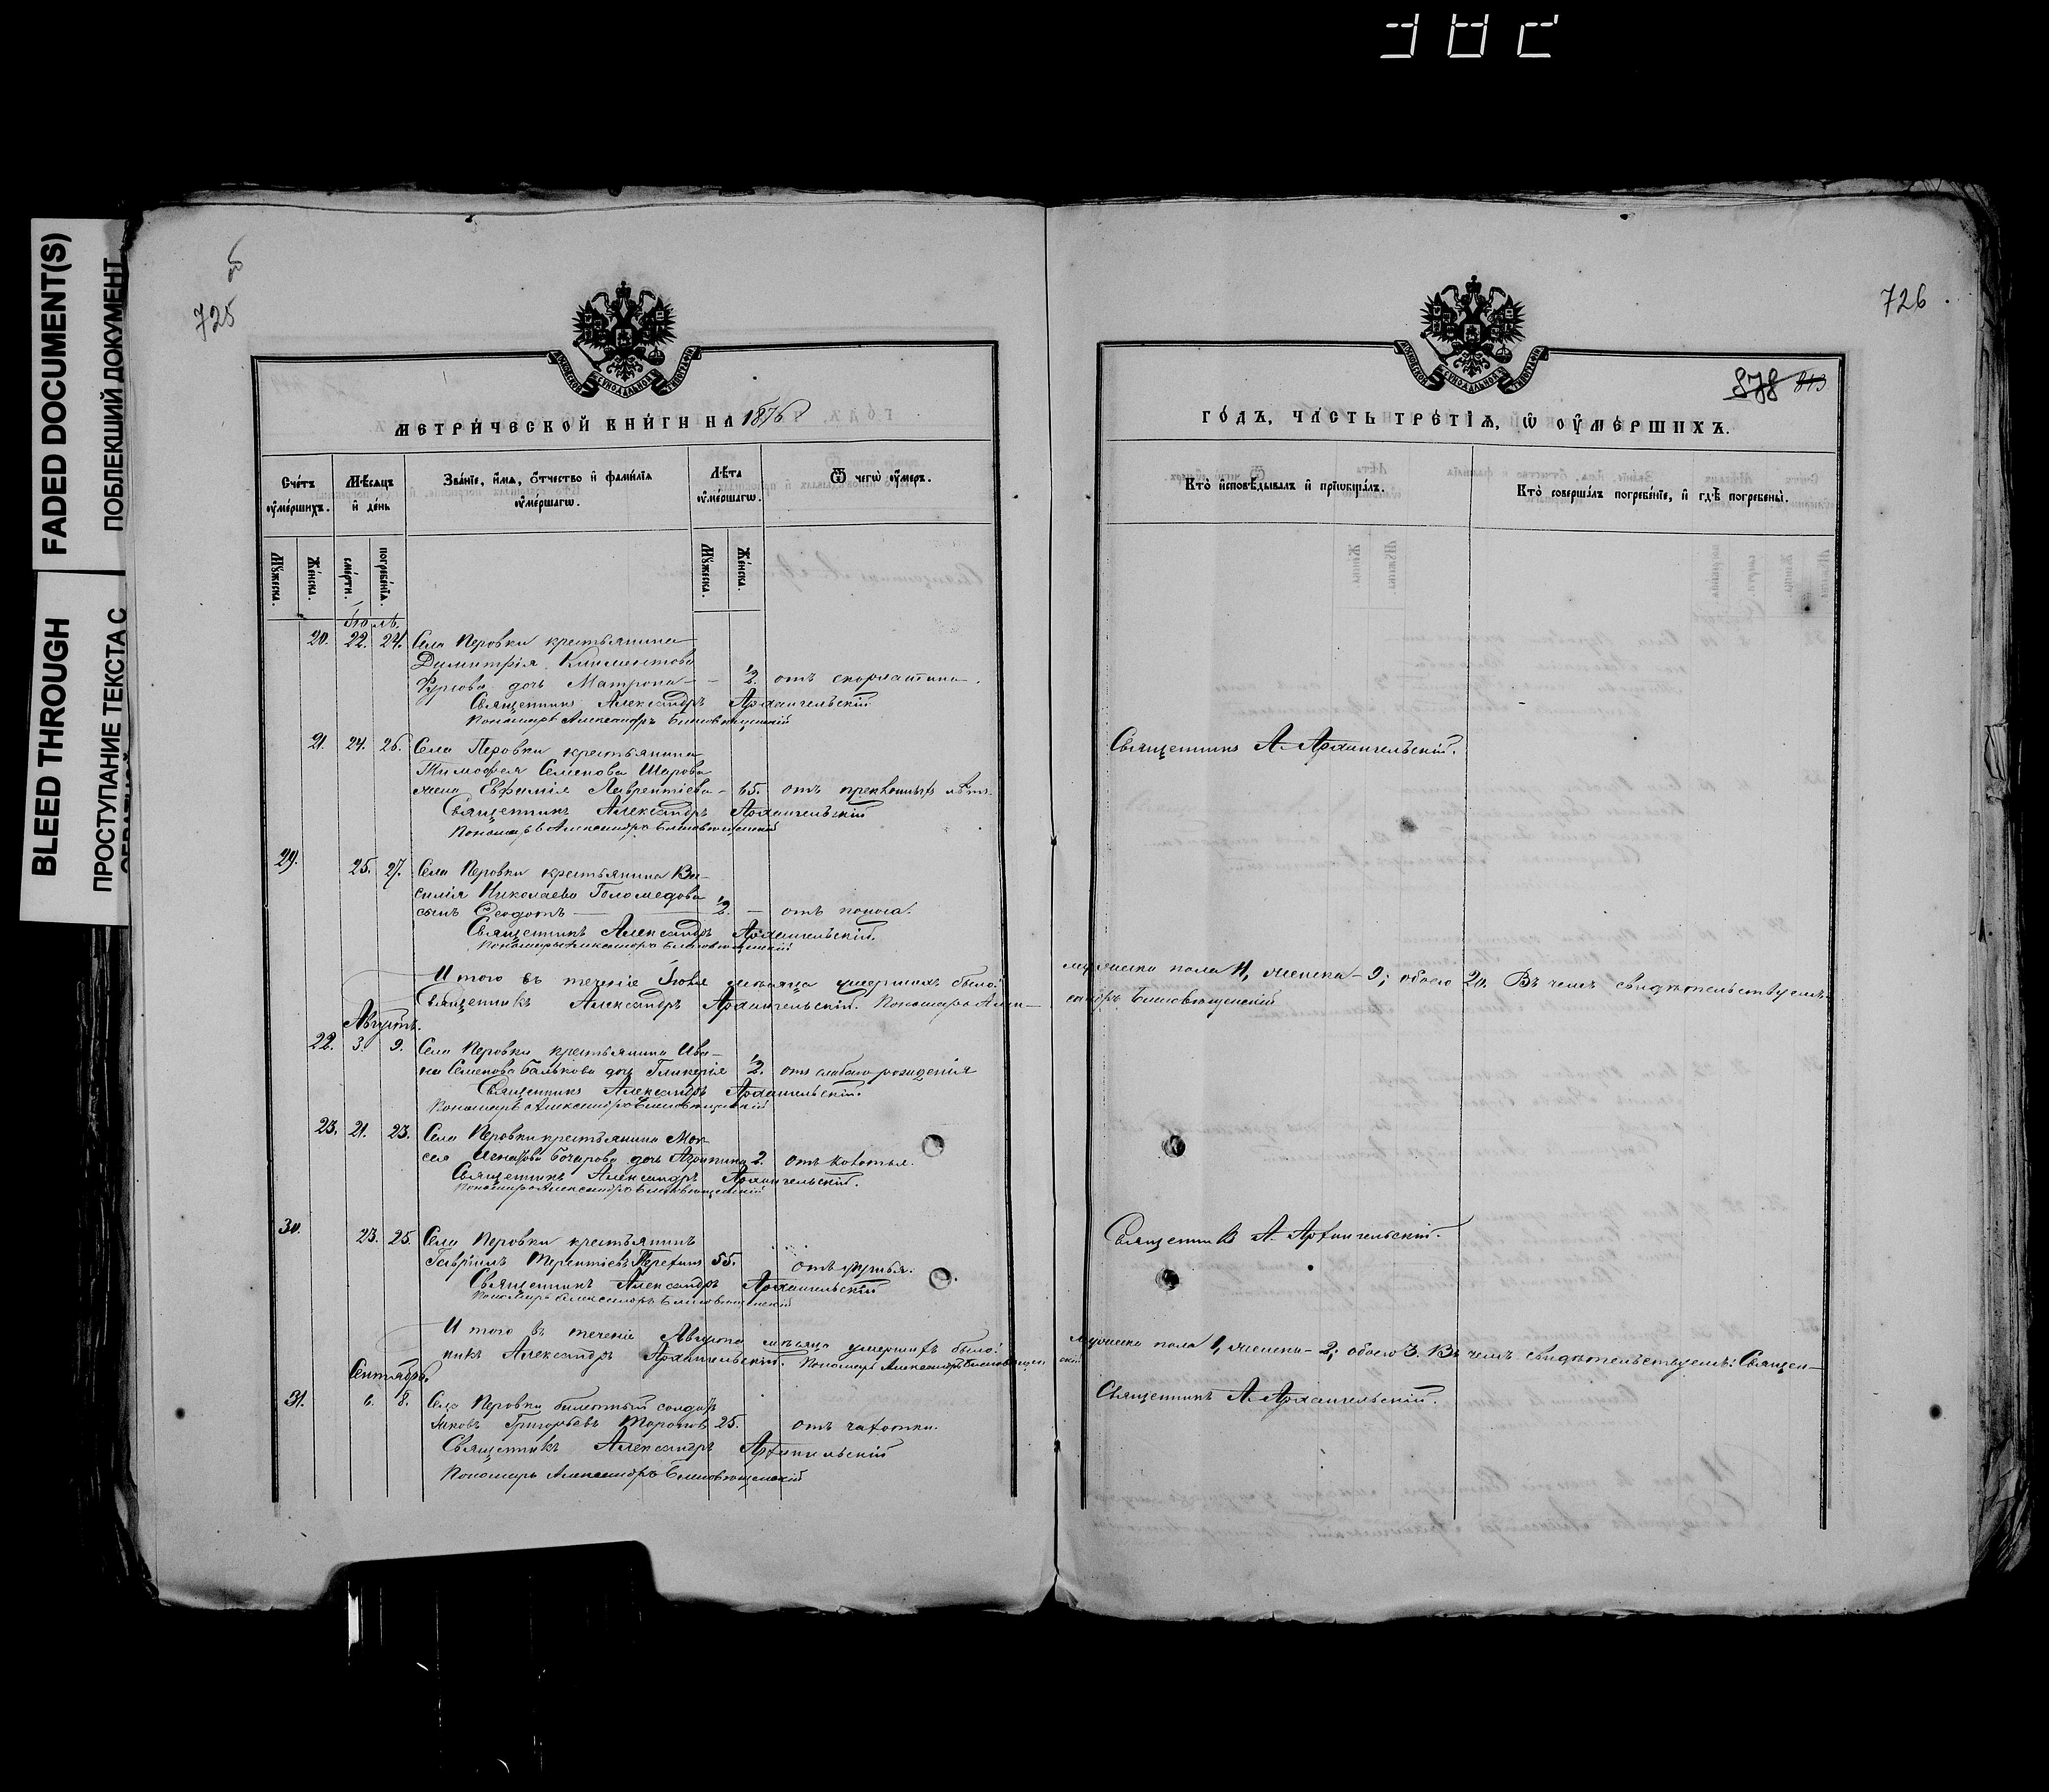 382
FADED DOCUMENT(S)
ПОБЛЕКШИЙ ДОКУМЕНТ
BLEED THROUGH
ПРОСТУПАНИЕ ТЕКСТА С
об
725
МЕТРИЧЕСКОЙ КНИГИ НА 1876
Счетъ оумершихъ.
Мѣсяцъ и день
Званіе, имя, отчество и фамилія оумершагѡ.
Лѣта оумершагѡ.
Ѿ чегѡ оумеръ.
Мужеска.
Женска.
смерти.
погребенія.
Мужеска.
Женска.
Іюль.
20. 22. 24. Села Перовки крестьянина
Димитрія Климентова
дочь Матрона — 1/2. отъ скорлатина.
Священникъ Александръ Архангельскій
Пономарь Александръ Благовѣщенскій
21. 24. 26. Села Перовки крестьянина
Тимофея Семенова Шарова
жена Евфимія Лаврентіева — 65. отъ преклонныхъ лѣтъ.
Священникъ Александръ Архангельскій
Пономарь Александръ Благовѣщенскій
29. 25. 27. Села Перовки крестьянина Ва-
силія Николаева Голомедова
сынъ Ѳеодотъ — 1/2. — отъ поноса.
Священникъ Александръ Архангельскій.
Пономарь Александръ Благовѣщенскій
Итого въ теченіе Іюля мѣсяца умершихъ было:
Священникъ Александръ Архангельскій. Пономарь Алек-
Августъ.
22. 3. 9. Села Перовки крестьянина Ива-
на Семенова Балыкова дочь Гликерія 1/2. отъ слабаго рожденія
Священникъ Александръ Архангельскій.
Пономарь Александръ Благовѣщенскій
23. 21. 23. Села Перовки крестьянина Мок-
сея Бочарова дочь Агрипина 2. отъ
Священникъ Александръ Архангельскій.
Пономарь Александръ Благовѣщенскій
30. 23. 25. Села Перовки крестьянинъ
Гавріилъ Терентіевъ 55. отъ
Священникъ Александръ Архангельскій
Пономарь Александръ Благовѣщенскій
Итого въ теченіе Августа мѣсяца умершихъ было:
никъ Александръ Архангельскій. Пономарь Александръ Благовѣщен
Сентябрь.
31. 6. 8. Села Перовки билетный солдатъ
Яковъ Григорьевъ 25. отъ чахотки.
Священникъ Александръ Архангельскій
Пономарь Александръ Благовѣщенскій
726
878 813
ГОДЪ, ЧАСТЬ ТРЕТІЯ, Ѡ ОУМЕРШИХЪ.
Кто исповѣдывалъ и пріобщалъ.
Кто совершалъ погребеніе, и гдѣ погребены.
Священникъ А. Архангельскій.
мужеска пола 11, женска — 9; обоего 20. Въ чемъ свидѣтельствуемъ:
сандръ Благовѣщенскій
Священникъ А. Архангельскій.
мужеска пола 1, женска — 2; обоего 3. Въ чемъ свидѣтельствуемъ: Священ-
скій
Священникъ А. Архангельскій.